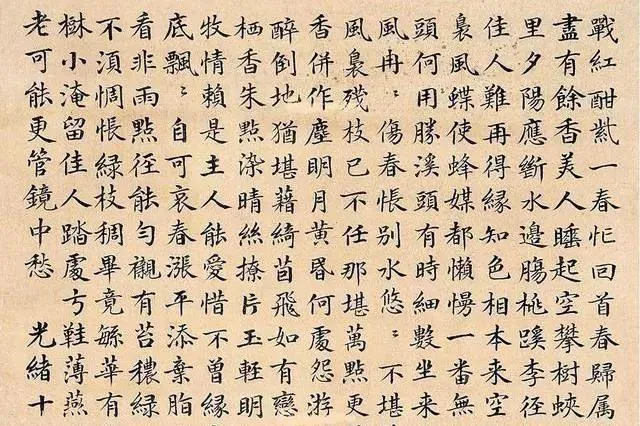 戰紅酣紫一春忙回首春歸属
盡有餘香美人睡起空攀樹蛺
里夕陽應斷水邊腸桃蹊李徑
佳人難再得緣知色相本来空
裊風蝶使蜂媒都懶慢一番無
頭何用勝溪頭有時細數坐来
風冉〻傷春悵别水悠〻不堪
風裊残枝已不任那堪萬點更
香併作塵明月黄昏何處怨游
醉倒地猶堪藉綺茵飛如有戀
栖香朱點染晴絲撩片玉輕明
牧情賴是主人能愛惜不曾緣
底飄〻自可哀春漲平添棄脂
看非雨點径能勻襯有苔穠緑
不湏惆悵緑枝稠畢竟緐華有
樹小淹留佳人踏處弓鞋薄燕
老可能更管鏡中愁 光緒十